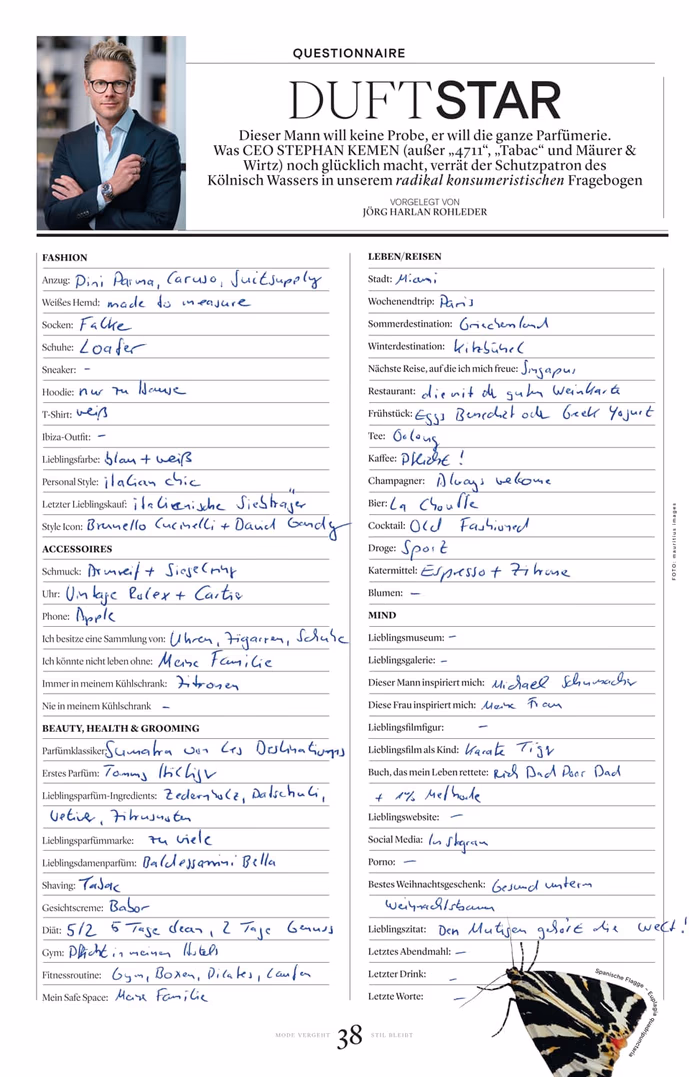 QUESTIONNAIRE
DUFTSTAR
Dieser Mann will keine Probe, er will die ganze Parfümerie.
Was CEO STEPHAN KEMEN (außer „4711“, „Tabac“ und Mäurer &
Wirtz) noch glücklich macht, verrät der Schutzpatron des
Kölnisch Wassers in unserem radikal konsumeristischen Fragebogen
VORGELEGT VON
JÖRG HARLAN ROHLEDER
FASHION
Anzug: Pini Parma, Caruso, Suitsupply
Weißes Hemd: made to measure
Socken: Falke
Schuhe: Loafer
Sneaker: -
Hoodie: nur zu Hause
T-Shirt: weiß
Ibiza-Outfit: –
Lieblingsfarbe: blau + weiß
Personal Style: italian chic
Letzter Lieblingskauf: italienische Siebträger
Style Icon: Brunello Cucinelli + David Gandy
ACCESSOIRES
Schmuck: Armreif + Siegelring
Uhr: Vintage Rolex + Cartier
Phone: Apple
Ich besitze eine Sammlung von: Uhren, Zigarren, Schuhe
Ich könnte nicht leben ohne: Meine Familie
Immer in meinem Kühlschrank: Zitronen
Nie in meinem Kühlschrank –
BEAUTY, HEALTH & GROOMING
Parfümklassiker: Sumatra von Les Destinations
Erstes Parfüm: Tommy Hilfiger
Lieblingsparfüm-Ingredients: Zedernholz, Patschuli,
Vetiver, Zitrusnoten
Lieblingsparfümmarke: zu viele
Lieblingsdamenparfüm: Baldessarini Bella
Shaving: Tabac
Gesichtscreme: Babor
Diät: 5/2 5 Tage clean, 2 Tage Genuss
Gym: Pflicht in meinen Hotels
Fitnessroutine: Gym, Boxen, Pilates, Laufen
Mein Safe Space: Meine Familie
LEBEN/REISEN
Stadt: Miami
Wochenendtrip: Paris
Sommerdestination: Griechenland
Winterdestination: Kitzbühel
Nächste Reise, auf die ich mich freue: Singapur
Restaurant: die mit der guten Weinkarte
Frühstück: Eggs Benedict oder Greek Yogurt
Tee: Oolong
Kaffee: Pflicht!
Champagner: Always welcome
Bier: La Chouffe
Cocktail: Old Fashioned
Droge: Sport
Katermittel: Espresso + Zitrone
Blumen: –
MIND
Lieblingsmuseum: –
Lieblingsgalerie: –
Dieser Mann inspiriert mich: Michael Schumacher
Diese Frau inspiriert mich: Meine Frau
Lieblingsfilmfigur: –
Lieblingsfilm als Kind: Karate Tiger
Buch, das mein Leben rettete: Rich Dad Poor Dad
+ 1% Methode
Lieblingswebsite: –
Social Media: Instagram
Porno: –
Bestes Weihnachtsgeschenk: Gesund unterm
Weihnachtsbaum
Lieblingszitat: Den Mutigen gehört die Welt!
Letztes Abendmahl: –
Letzter Drink: –
Letzte Worte: –
FOTO: mauritius images
Spanische Flagge – Euplagia quadripunctaria
MODE VERGEHT 38 STIL BLEIBT